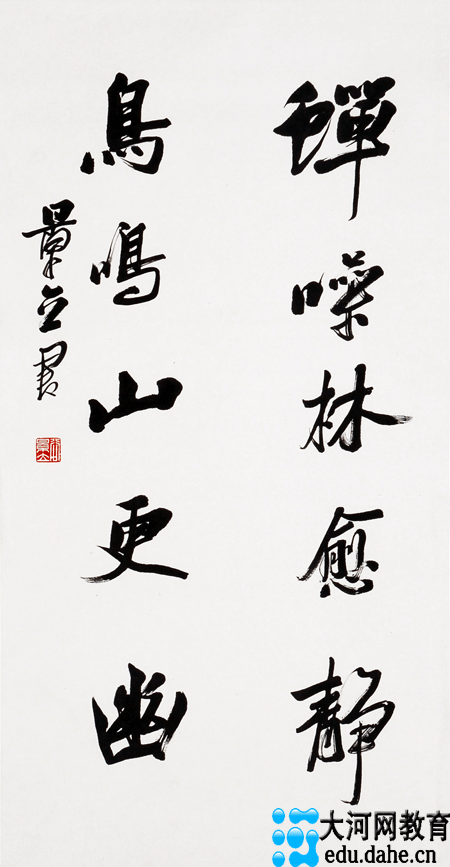 蟬噪林愈静
鳥鳴山更幽
大河网教育
edu.dahe.cn